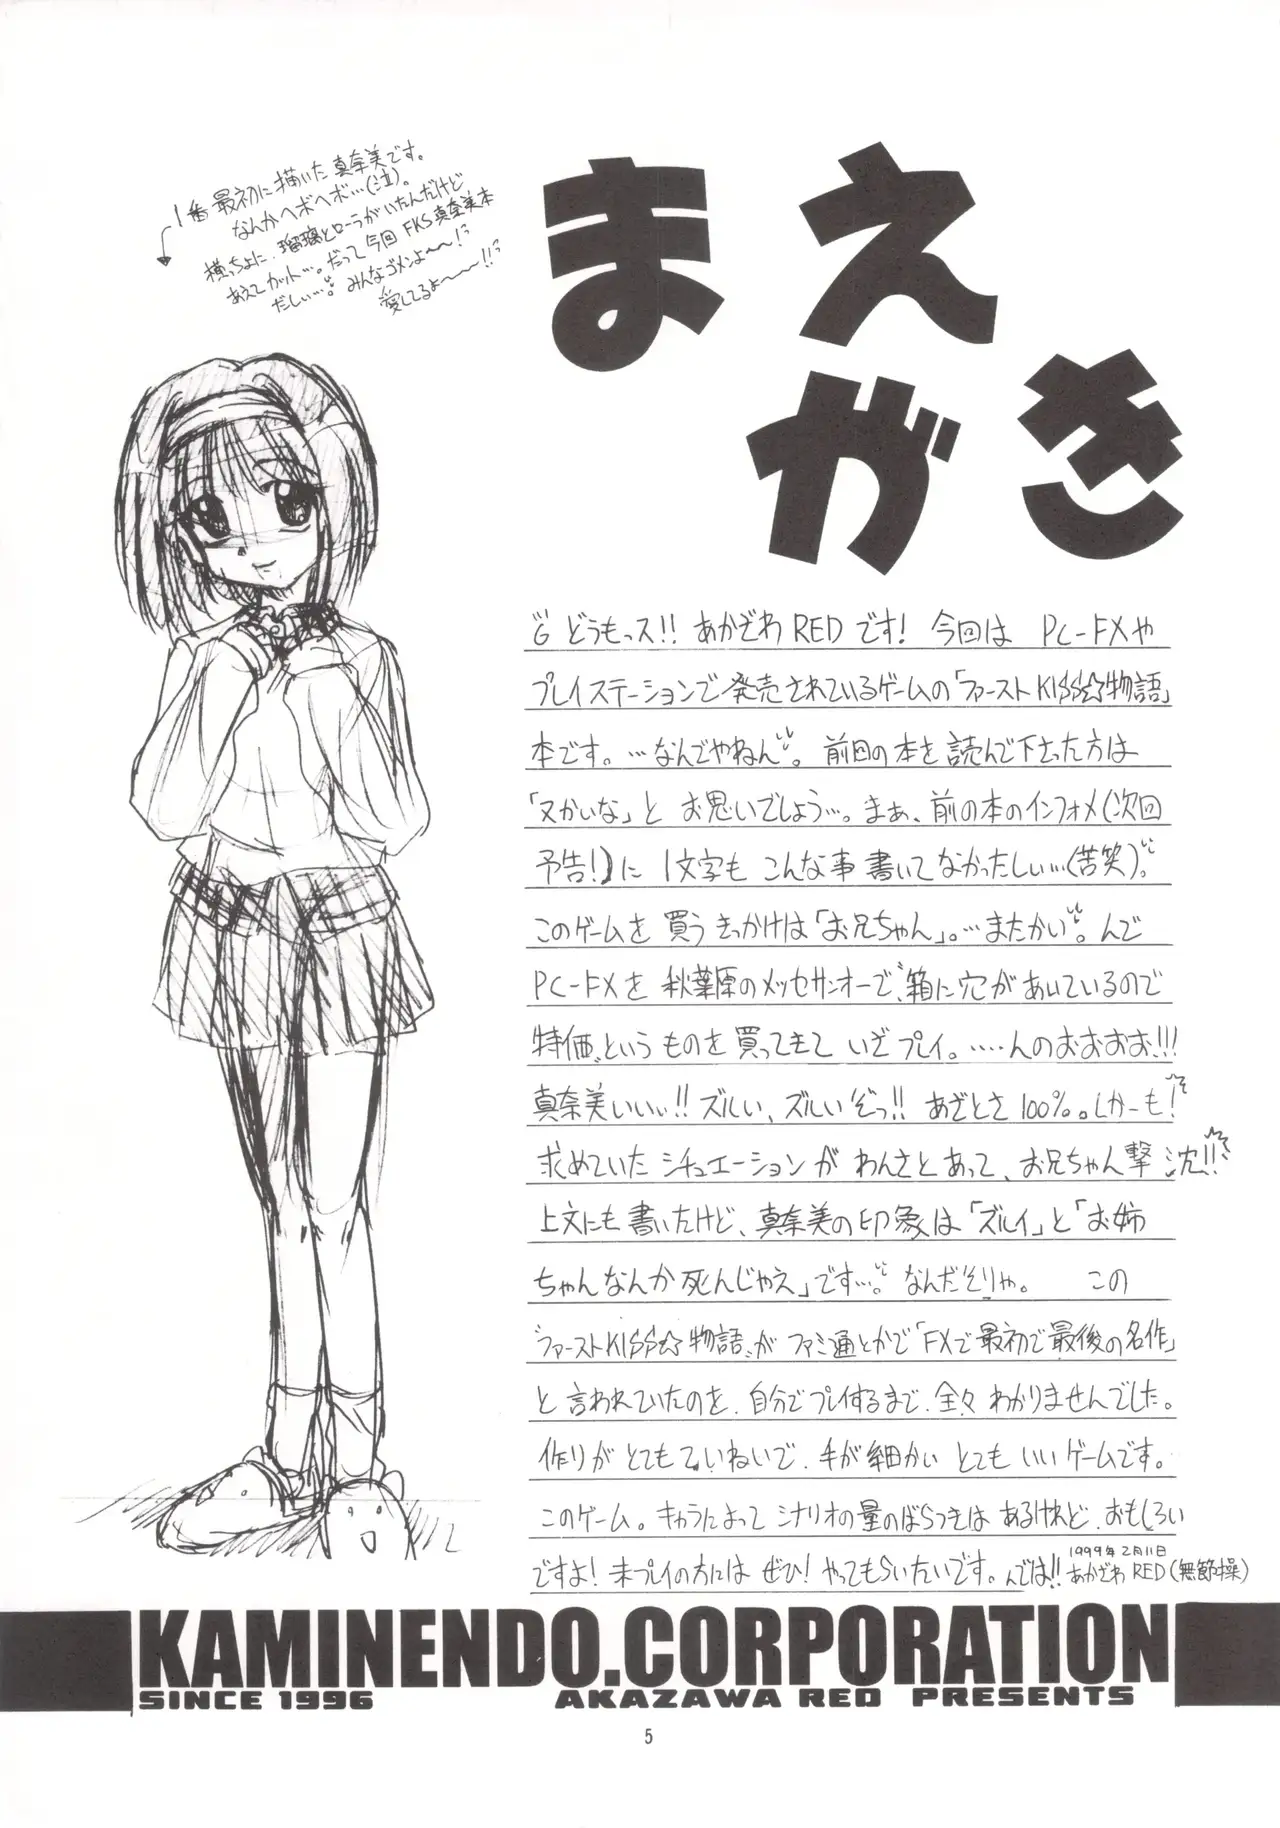 まえがき
1番最初に描いた真奈美です。
なんかヘボヘボ…(泣)。
横っちょに、瑠璃とローラがいたんだけど
あえてカット…。だって今回FKS真奈美本
だしぃ…。みんなゴメンよ〜〜!
愛してるよ〜〜〜!!
どうもっス!! あかざわREDです! 今回は PC-FXや
プレイステーションで発売されているゲームの「ファーストKISS☆物語」
本です。…なんでやねん。前回の本を読んで下さった方は
「又かいな」と お思いでしょう…。まぁ、前の本のインフォメ(次回
予告!)に 1文字も こんな事書いてなかったしぃ…(苦笑)。
このゲームを買うきっかけは「お兄ちゃん」。…またかい。んで
PC-FXを 秋葉原のメッセサンオーで、箱に穴があいているので
特価、というものを買ってきて いざプレイ。……んのおおおお!!!
真奈美いいぃ!! ズルい、ズルいぞっ!! あざとさ100%。しかーも!
求めていたシチュエーションが わんさとあって、お兄ちゃん撃沈!!
上文にも書いたけど、真奈美の印象は「ズルイ」と「お姉
ちゃんなんか死んじゃえ」です…。なんだそりゃ。 この
“ファーストKISS☆物語„が ファミ通とかで「FXで最初で最後の名作」
と言われていたのを、自分でプレイするまで、全々わかりませんでした。
作りがとてもていねいで、手が細かい とても いいゲームです。
このゲーム。キャラによって シナリオの量のばらつきは あるけれど、おもしろい
ですよ! 未プレイの方には ぜひ! やってもらいたいです。んでは!!
1999年2月11日
あかざわRED(無節操)
KAMINENDO.CORPORATION
SINCE 1996 AKAZAWA RED PRESENTS
5